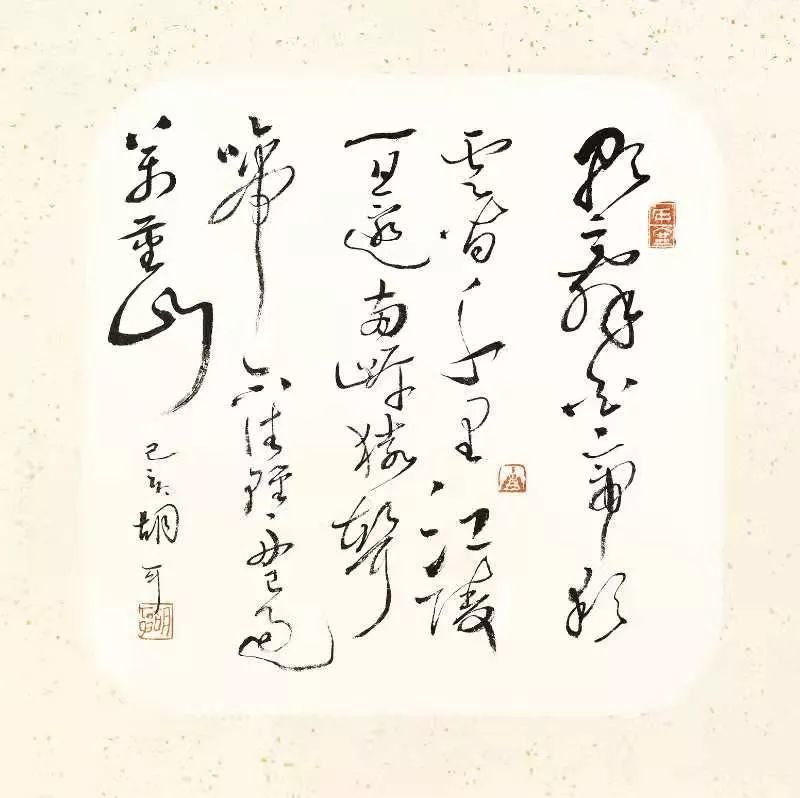 朝辭白帝彩
雲間千里江陵
一日還兩岸猿聲
啼不住輕舟已過
萬重山
己亥胡